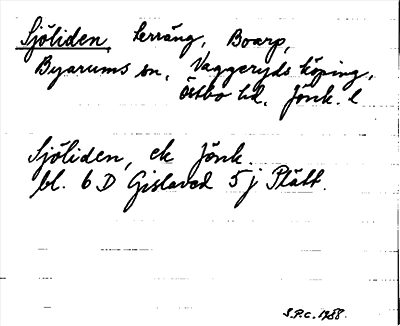 Sjöliden, terräng, Boarp,
Byarums sn, Vaggeryds köping,
Östbo hd. Jönk. l
Sjöliden, ek Jönk.
bl. 6 D Gislaved 5 j Plått.
S.P.C. 1988.